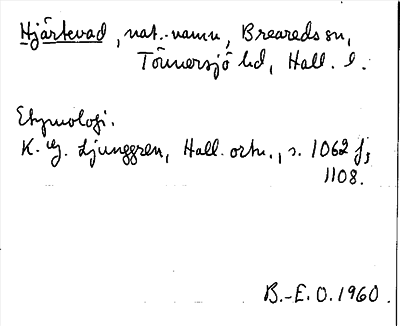 Hjärtevad, nat.-namn, Breareds sn,
Tönnersjö hd, Hall. l.
Etymologi.
K. G. Ljunggren, Hall. ortn., s. 1062 f;
1108.
B.-E. O. 1960.